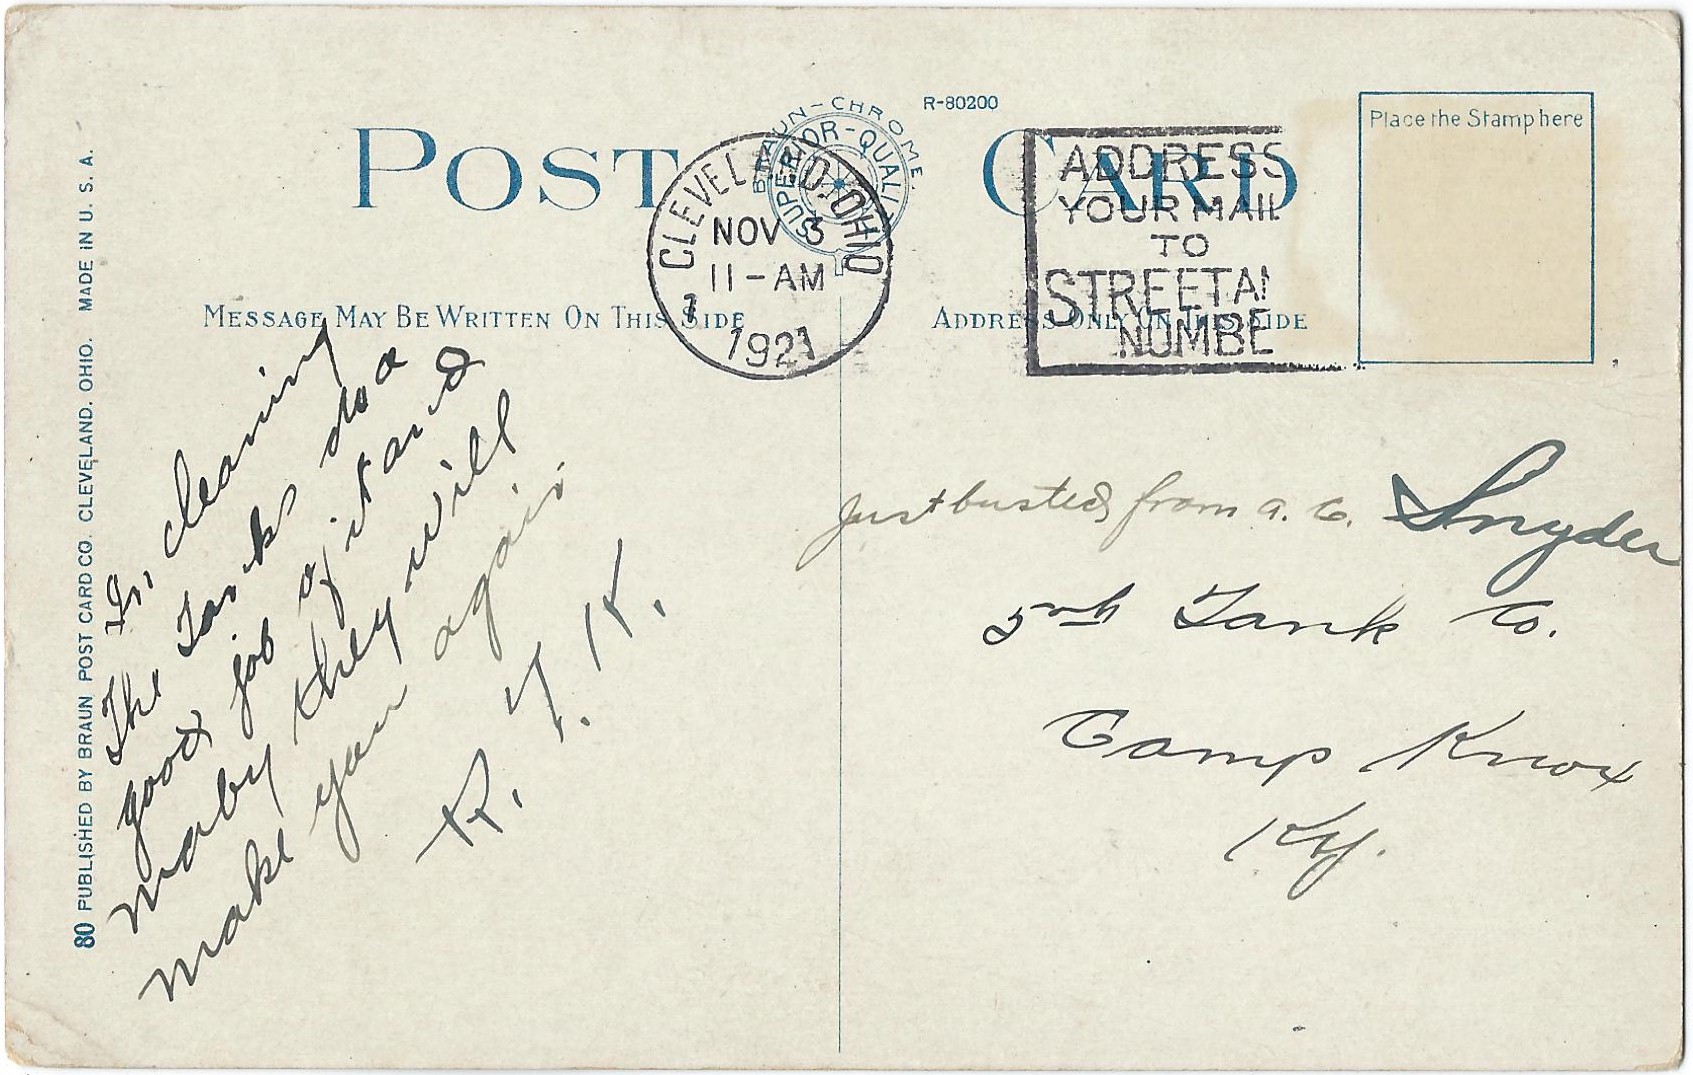 POST CARD
BRAUN-CHROME.
SUPERIOR-QUALITY
R-80200
Place the Stamp here
CLEVELAND, OHIO
NOV 3
11-AM
1
1921
ADDRESS
YOUR MAIL
TO
STREET A
NUMBE
MESSAGE MAY BE WRITTEN ON THIS SIDE
ADDRESS ONLY ON THIS SIDE
80 PUBLISHED BY BRAUN POST CARD CO. CLEVELAND, OHIO. MADE IN U. S. A.
In cleaning
The Tanks do a
good job of it and
maby they will
make you again
R. T. K.
Just busted from a. C. Snyder
5th Tank Co.
Camp Knox
Ky.